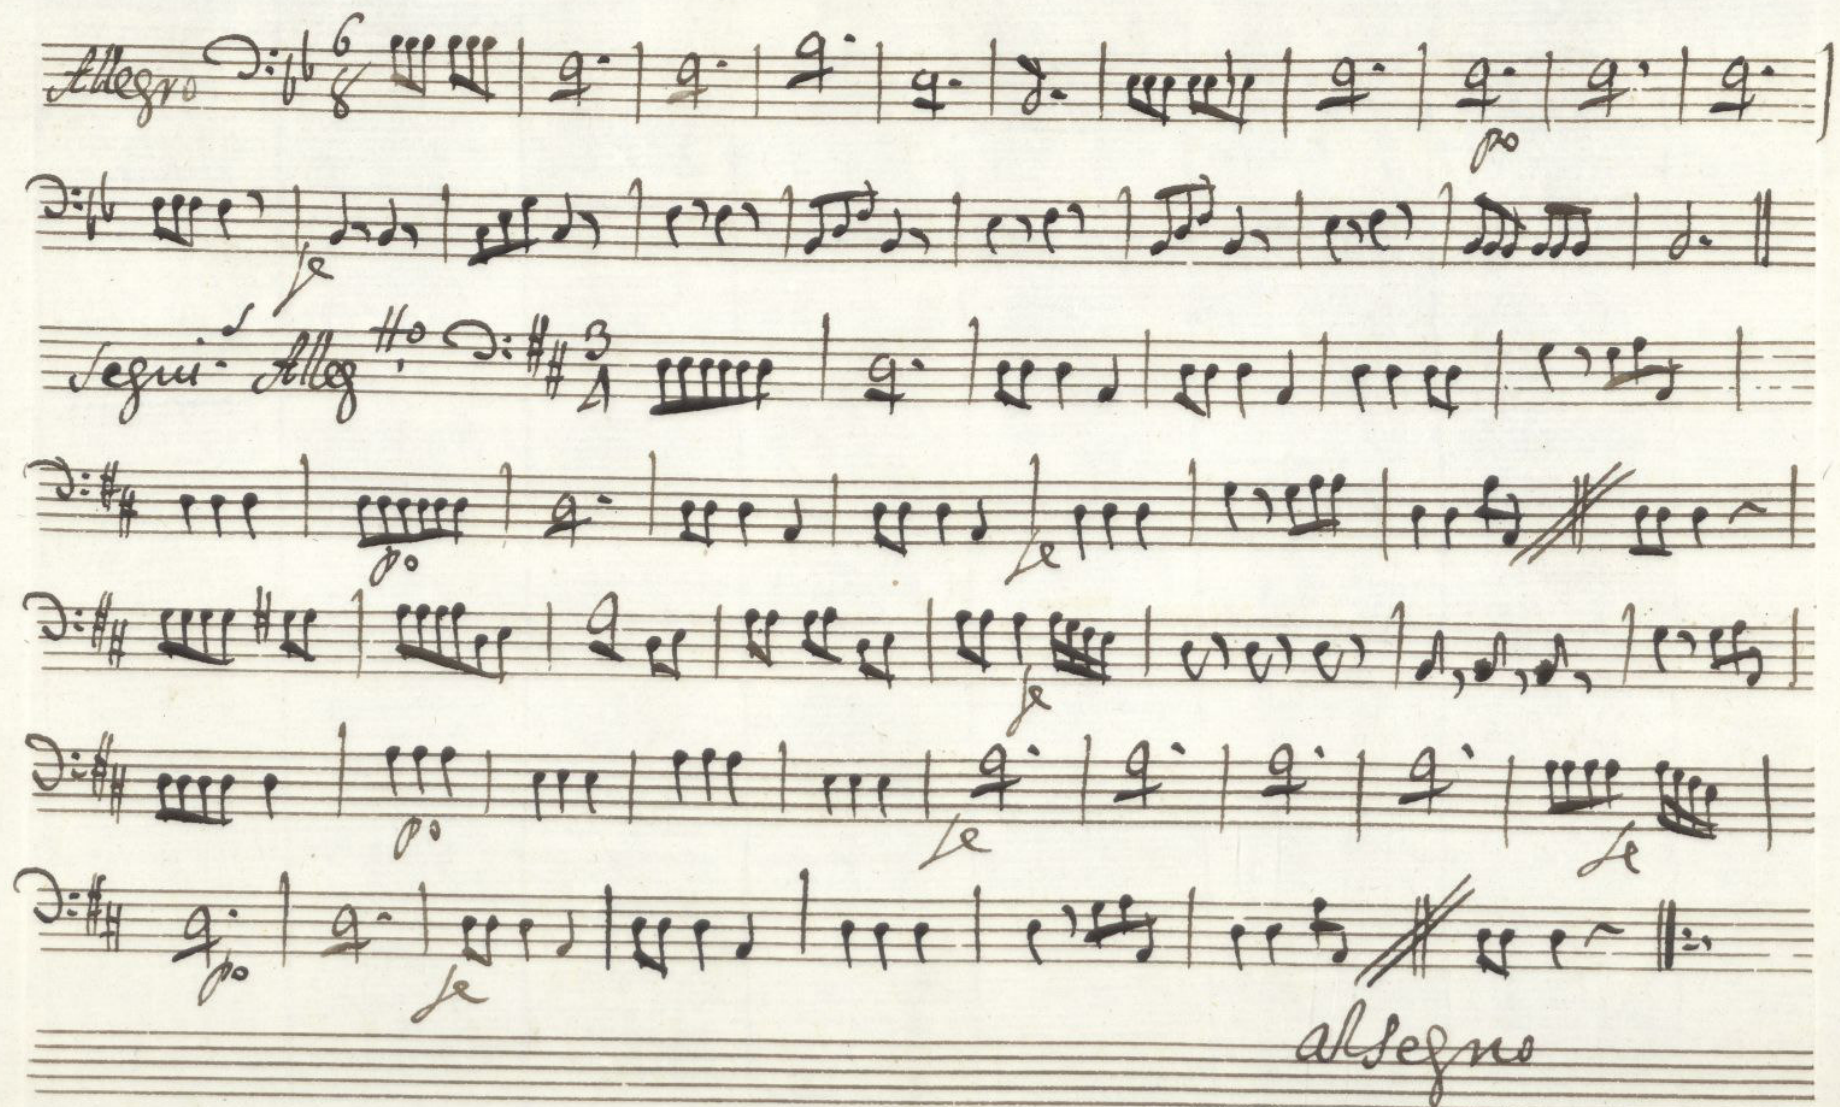 Allegro 6 8
po
fe
Segui.s Allegtto. 3 4
po fe
fe
po fe fe
po fe
al segno